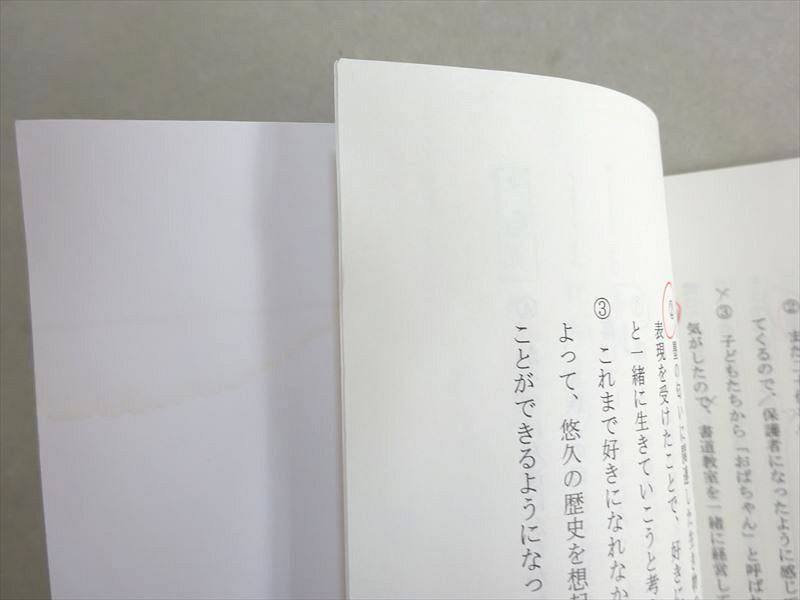 ② また
てくるので、保護者になったように感じて
③ 子どもたちから「おばちゃん」と呼ばれ
気がしたので、書道教室を一緒に経営して
② 墨の匂いに関連した
表現を受けたことで、好きに
と一緒に生きていこうと考
③ これまで好きになれなか
よって、悠久の歴史を想起
ことができるようになっ